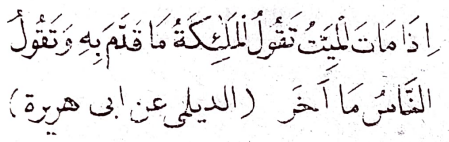 اِذَا مَاتَ الْمَيِّتُ تَقُولُ الْمَلٰئِكَةُ مَا قَدَّمَ بِهِ وَتَقُولُ
النَّاسُ مَا آخَرَ (الديلمى عن ابى هريرة)